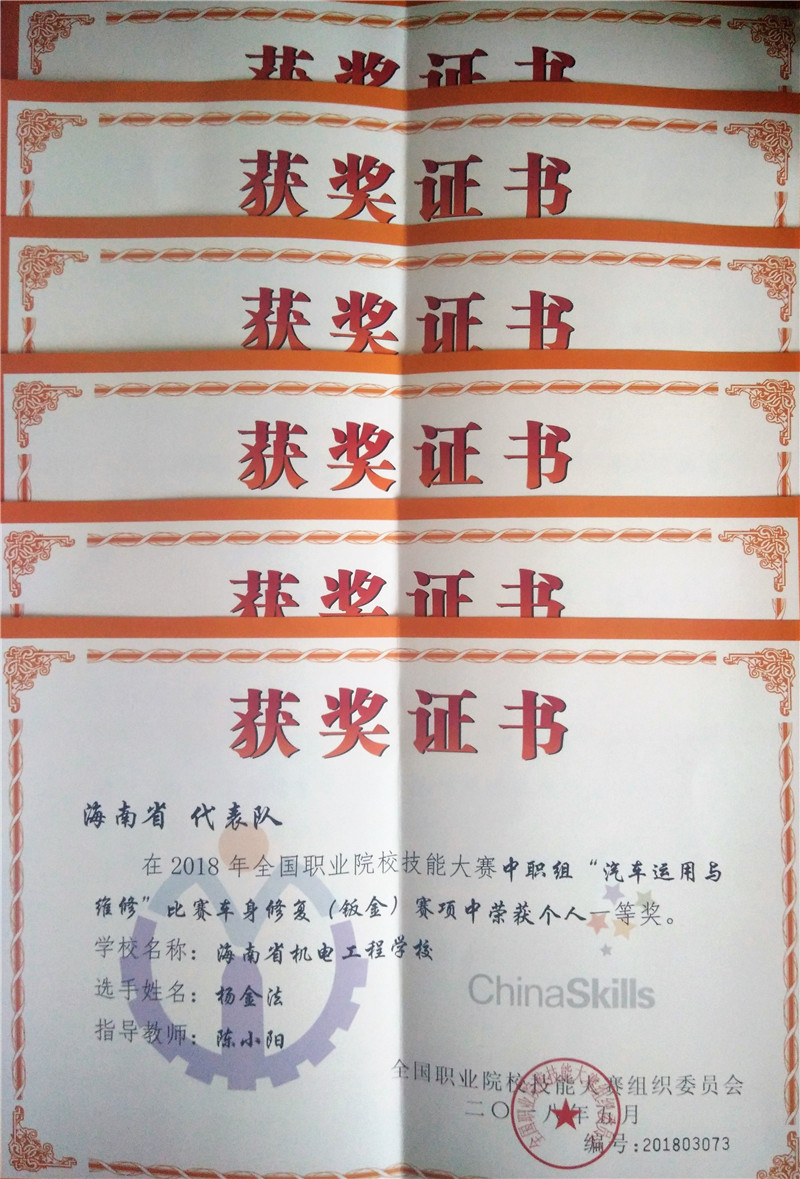 获奖证书
获奖证书
获奖证书
获奖证书
获奖证书
获奖证书
海南省 代表队
在2018年全国职业院校技能大赛中职组“汽车运用与
维修”比赛车身修复（钣金）赛项中荣获个人一等奖。
学校名称：海南省机电工程学校
选手姓名：杨金法
ChinaSkills
指导教师：陈小阳
全国职业院校技能大赛组织委员会
二〇一八年五月
编号:201803073